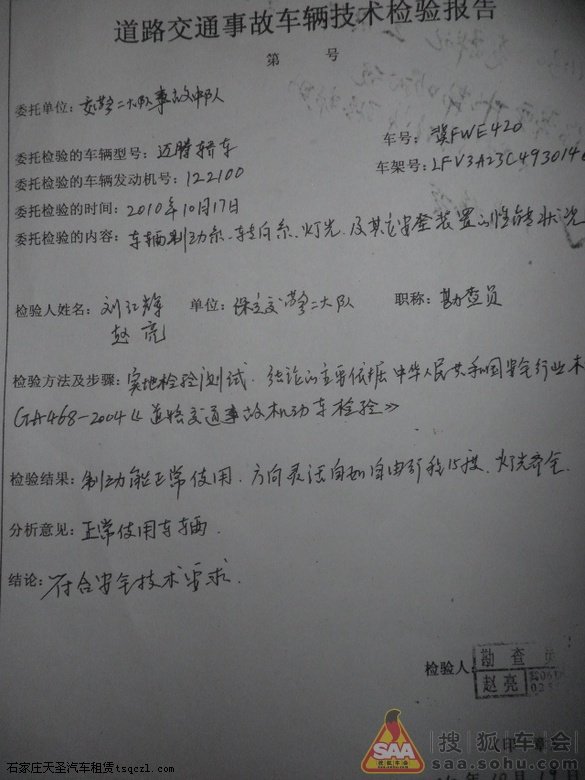 道路交通事故车辆技术检验报告
第 号
委托单位：交警二大队事故中队
车号：冀FWE420
委托检验的车辆型号：迈腾轿车
车架号：LFV3A23C4930146
委托检验的车辆发动机号：122100
委托检验的时间：2010年10月17日
委托检验的内容：车辆制动系、转向系、灯光、及其它安全装置的性能状况
检验人姓名：刘红辉 单位：保定交警二大队 职称：勘查员
赵亮
检验方法及步骤：实地检验测试．结论的主要依据中华人民共和国安全行业标
GA468-2004《道路交通事故机动车检验》
检验结果：制动能正常使用．方向灵活自如自由行程15度．灯光齐全
分析意见：正常使用车辆．
结论：符合安全技术要求．
检验人：
勘查员
赵亮
（印章
搜狐车会
SAA
saa.sohu.com
石家庄天圣汽车租赁tsqczl.com